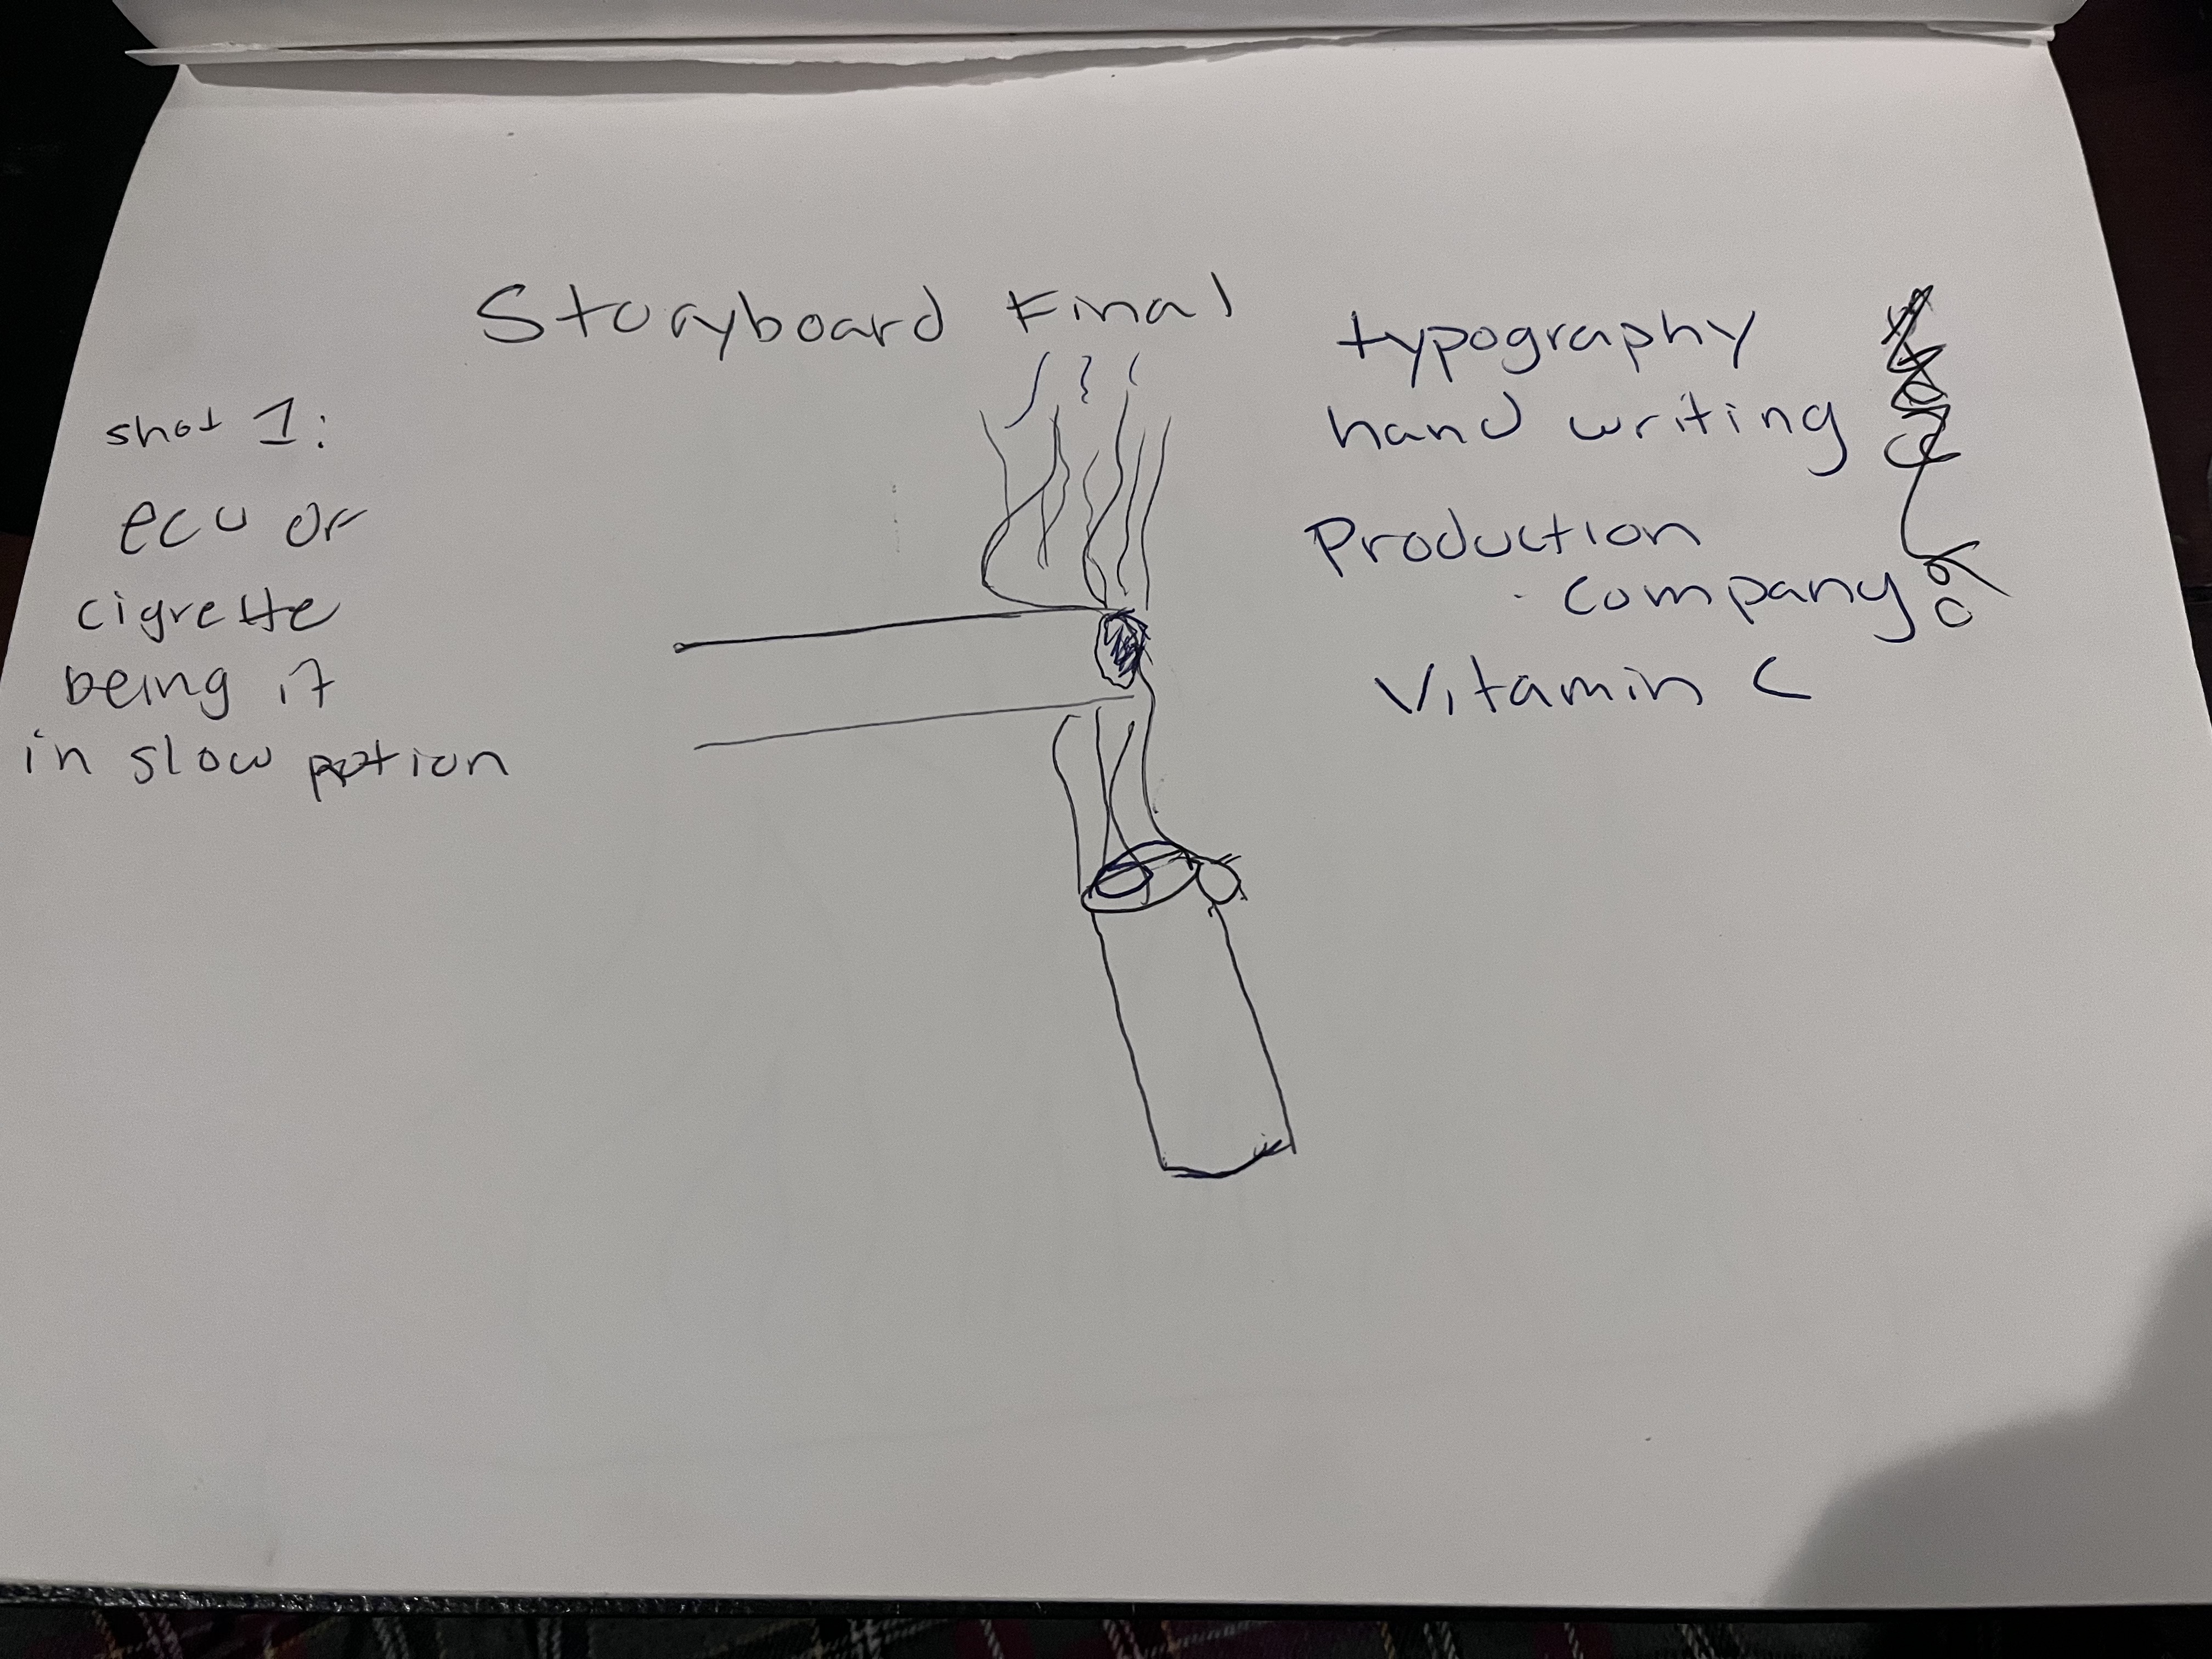 Storyboard Final
shot 1:
ecu or
cigrette
being it
in slow motion
typography
hand writing
Production
company
Vitamin C